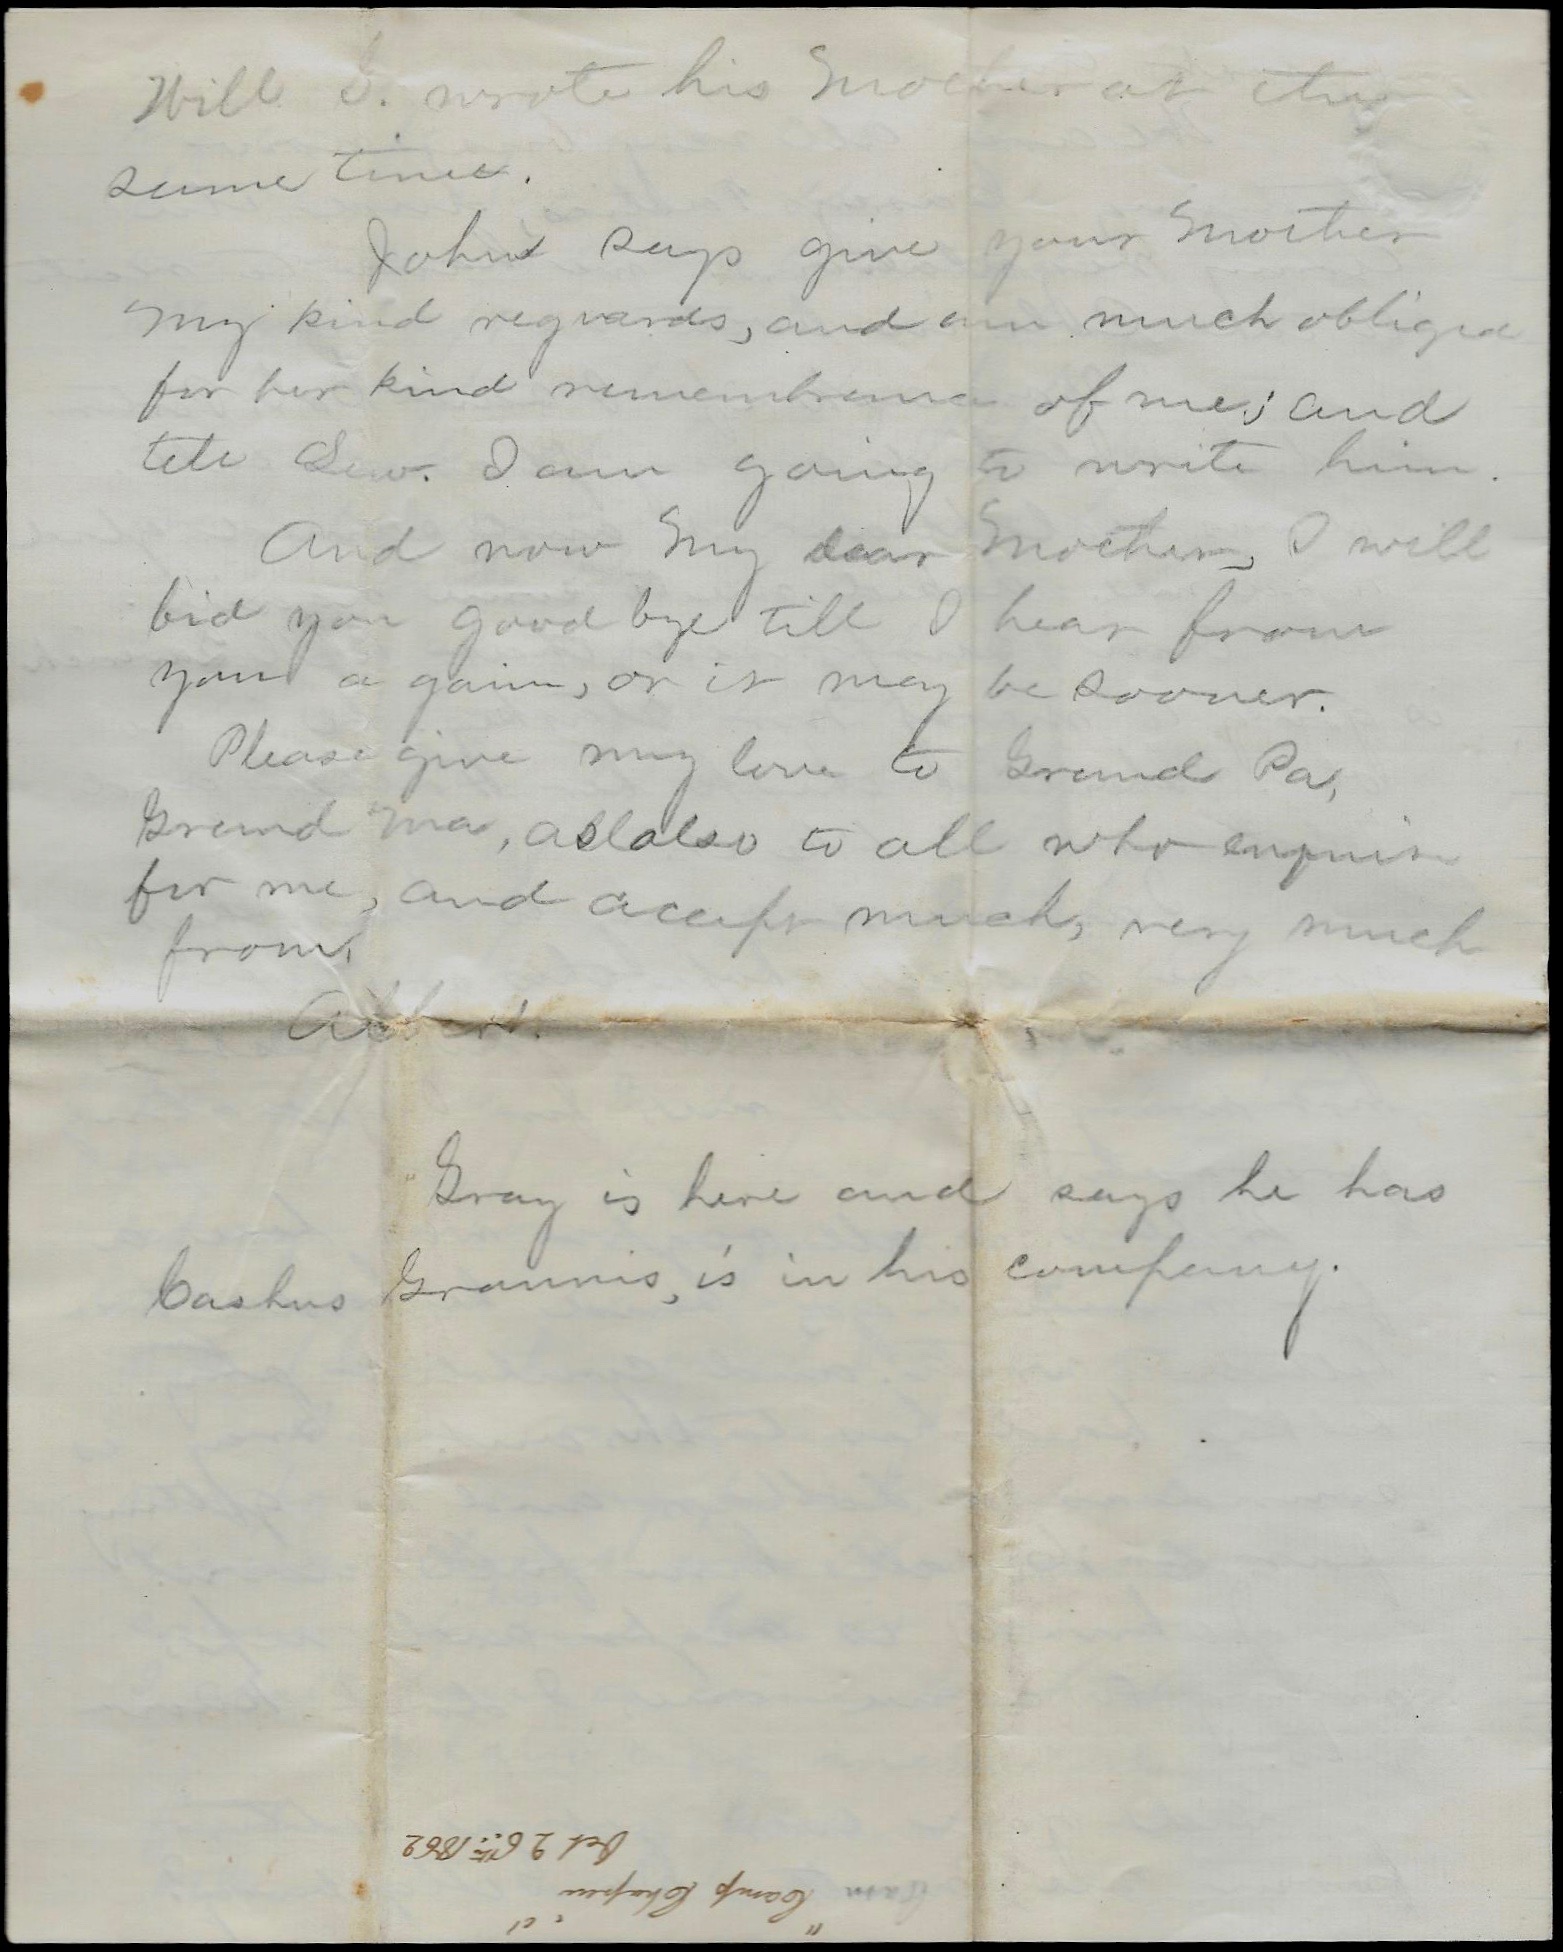 Will S. wrote his Mother at the
same time.
John says give your Mother
My kind reguards, and am much obliged
for her kind remembrance of me; and
tell Lew. I am going to write him.
And now My dear Mother, I will
bid you good bye till I hear from
you again, or it may be sooner.
Please give my love to Grand Pa,
Grand Ma, also to all who enquire
for me, and accept much, very much
from,
Albert.
Gray is here and says he has
Cashus Grannis, is in his company.
"Camp Chapin"
Oct 26th 1862